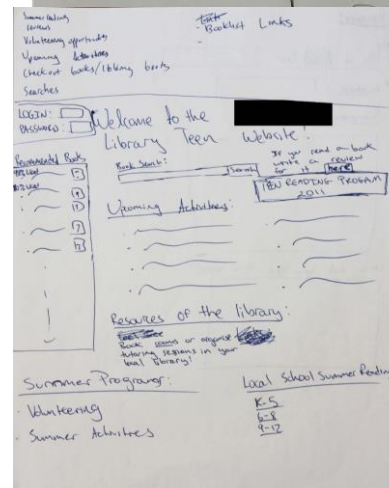 Summer Reading
reviews
Volunteering opportunities
Upcoming Activities
Check out books/listening books
Searches
Booklist Links
LOGIN:
PASSWORD:
Welcome to the
Library Teen Website!
Recommended Books
Book Search:
Search
If you read a book
write a review
for it here
TEEN READING PROGRAM
2011
Upcoming Activities:
Resources of the library:
Book rooms or organize
tutoring sessions in your
local library!
Summer Programs:
· Volunteering
· Summer Activities
Local School Summer Reading
K-5
6-8
9-12